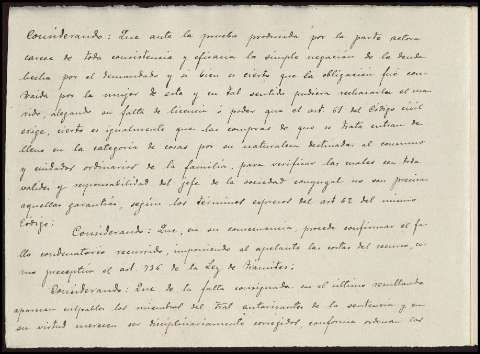 Considerando: Que ante la prueba producida por la parte actora
carece de toda consistencia y eficacia la simple negación de la deuda
hecha por el demandado y si bien es cierto que la obligación fué con-
traida por la mujer de este y en tal sentido pudiera rechazarla el ma-
rido, alegando su falta de licencia ó poder que el art. 61 del Código civil
exige, cierto es igualmente que las compras de que se trata entran de
lleno en la categoria de cosas por su naturaleza destinadas al consumo
y cuidados ordinarios de la familia, para verificar las cuales con toda
validez y responsabilidad del jefe de la sociedad conyugal no son precisas
aquellas garantías, según los términos expresos del art 62 del mismo
Código:
Considerando: Que, en su consecuencia, procede confirmar el fa-
llo condenatorio recurrido, imponiendo al apelante las costas del recurso, co-
mo preceptua el art. 736 de la Ley de Trámites:
Considerando: Que de la falta consignada en el último resultando
aparecen culpables los miembros del Tral autorizantes de la sentencia y en
su virtud merecen ser disciplinariamente corregidos conforme ordenan los